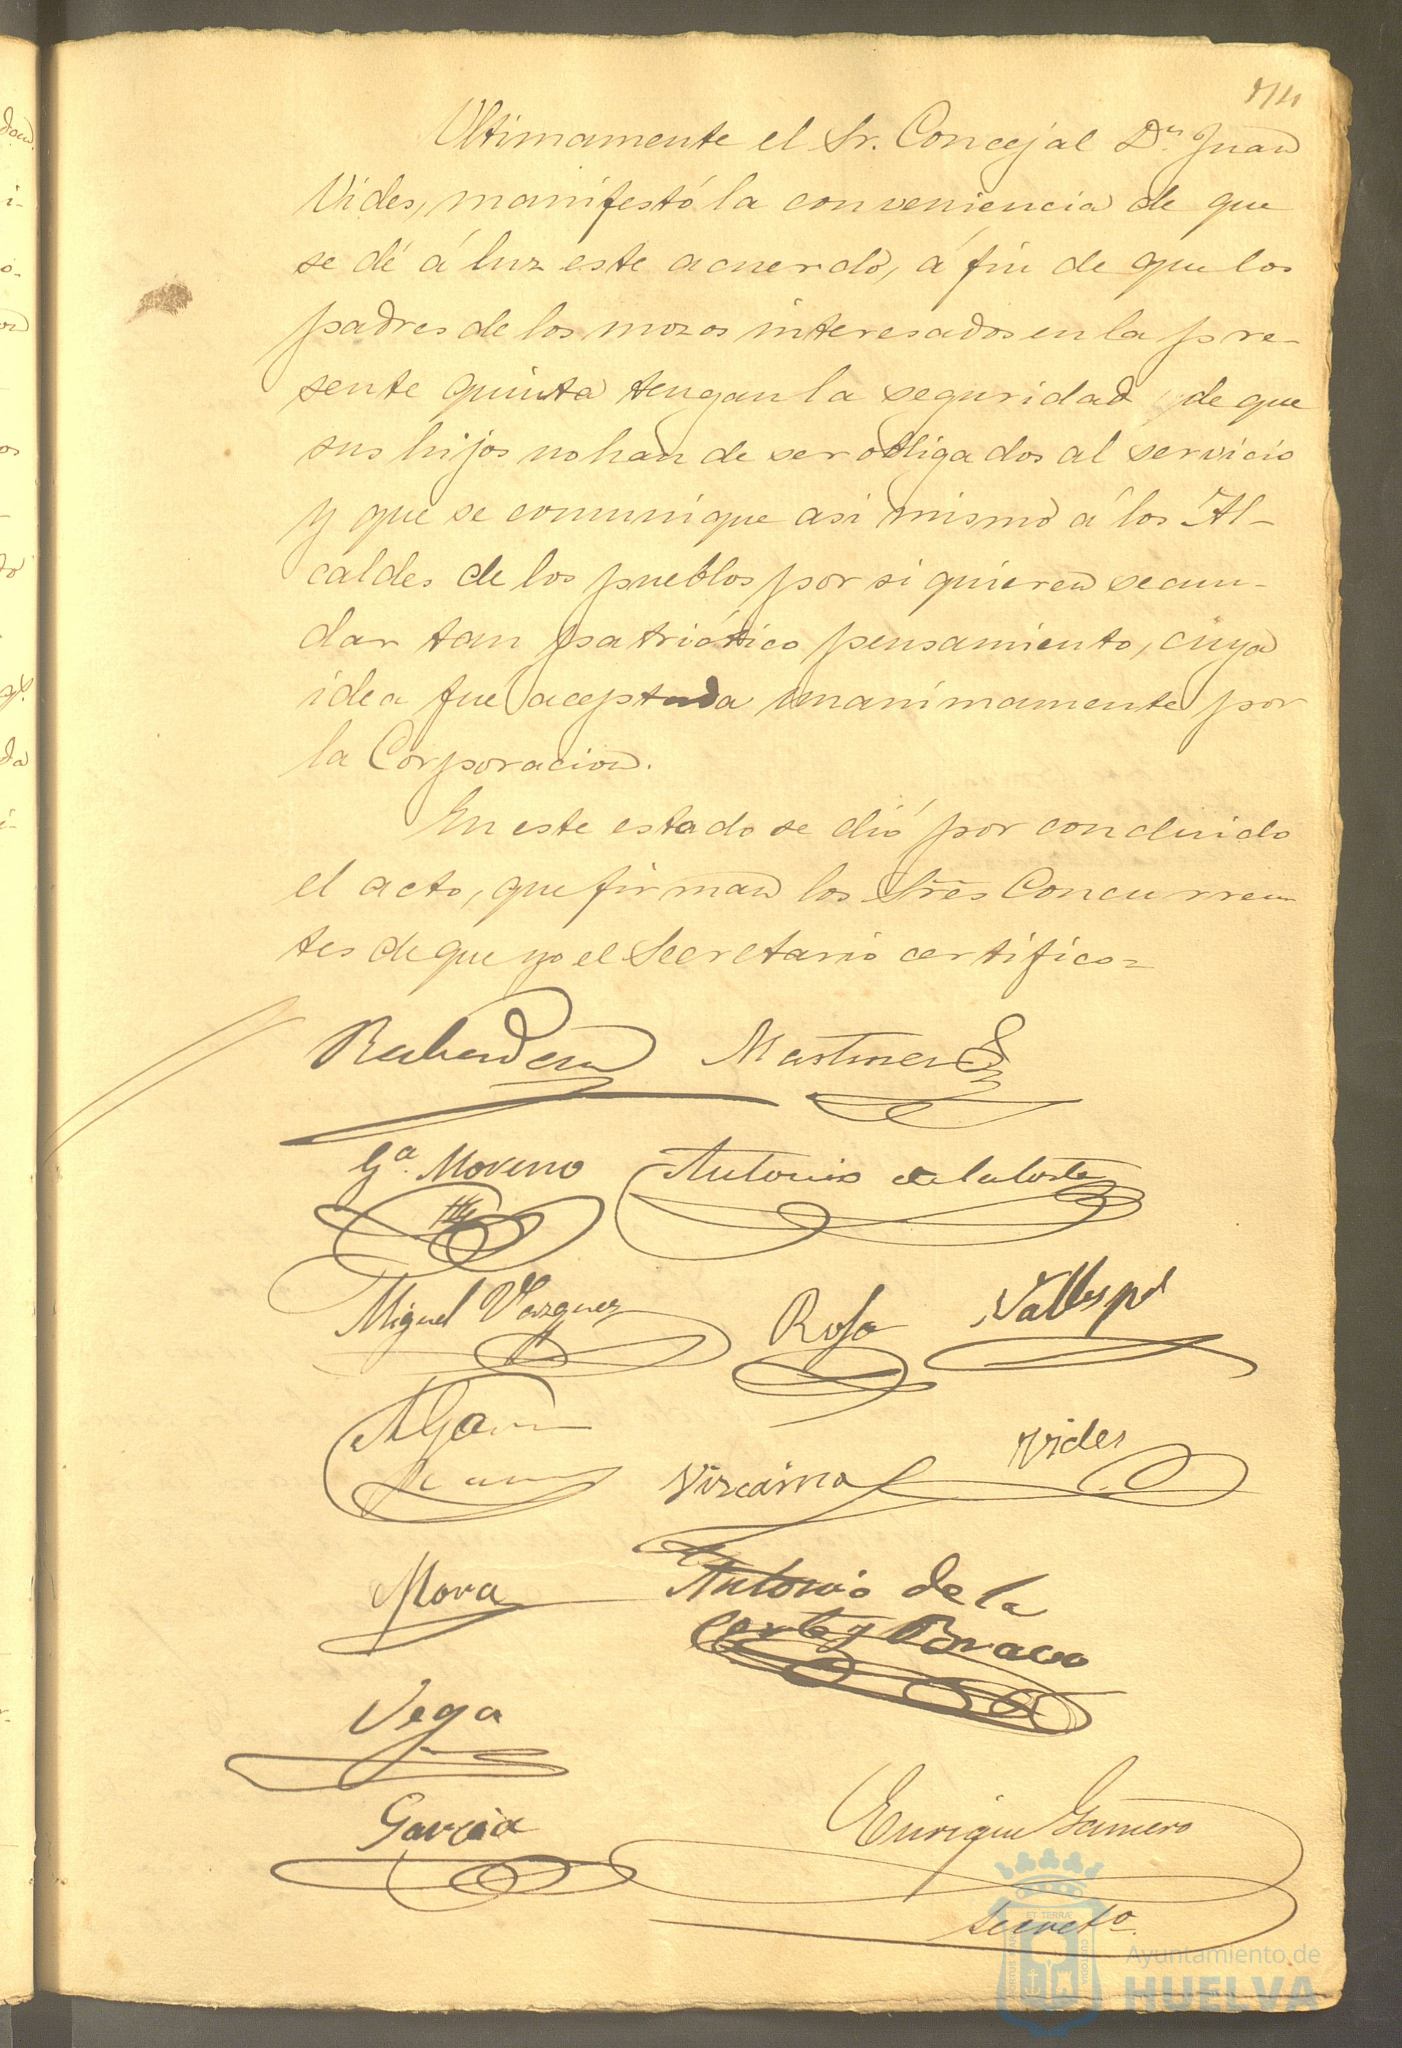 Ultimamente el Sr. Concejal Dn. Juan
Vides, manifestó la conveniencia de que
se dé á luz este acuerdo, á fin de que los
padres de los mozos interesados en la pre-
sente quinta tengan la seguridad de que
sus hijos no han de ser obligados al servicio
y que se comunique asi mismo á los Al-
caldes de los pueblos por si quieren secun-
dar tan patriótico pensamiento, cuya
idea fué aceptada unanimamente por
la Corporacion.
En este estado se dió por concluido
el acto, que firman los Sres Concurren
tes de que yo el Secretario certifico=
Martinez
Ga. Moreno
Antonio de la Corte
Miguel Vazquez
Rofa
Vallespi
Vizcaino
Vides
Mora
Antonio de la
Corte y Bravo
Vega
Garcia
Enrique Gamero
Secreto.
Ayuntamiento de
HUELVA